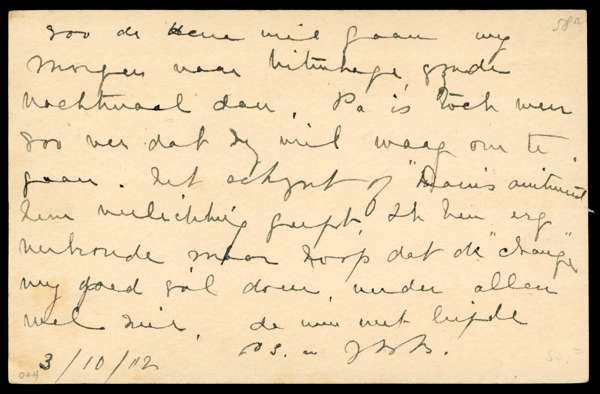 58a
zoo de Heere wil gaan wy
morgen naar Uitenhage, zonder
nachtmaal daar. Pa is toch weer
zoo ver dat zy wil waag om te
gaan. Het schynt of "Doan's ointment"
hem verlichting geeft. Ik ben erg
verkoude maar hoop dat de "change"
my goed zal doen, verder allen
wel hier, de uwe met liefde
P.S. en
3/10/12